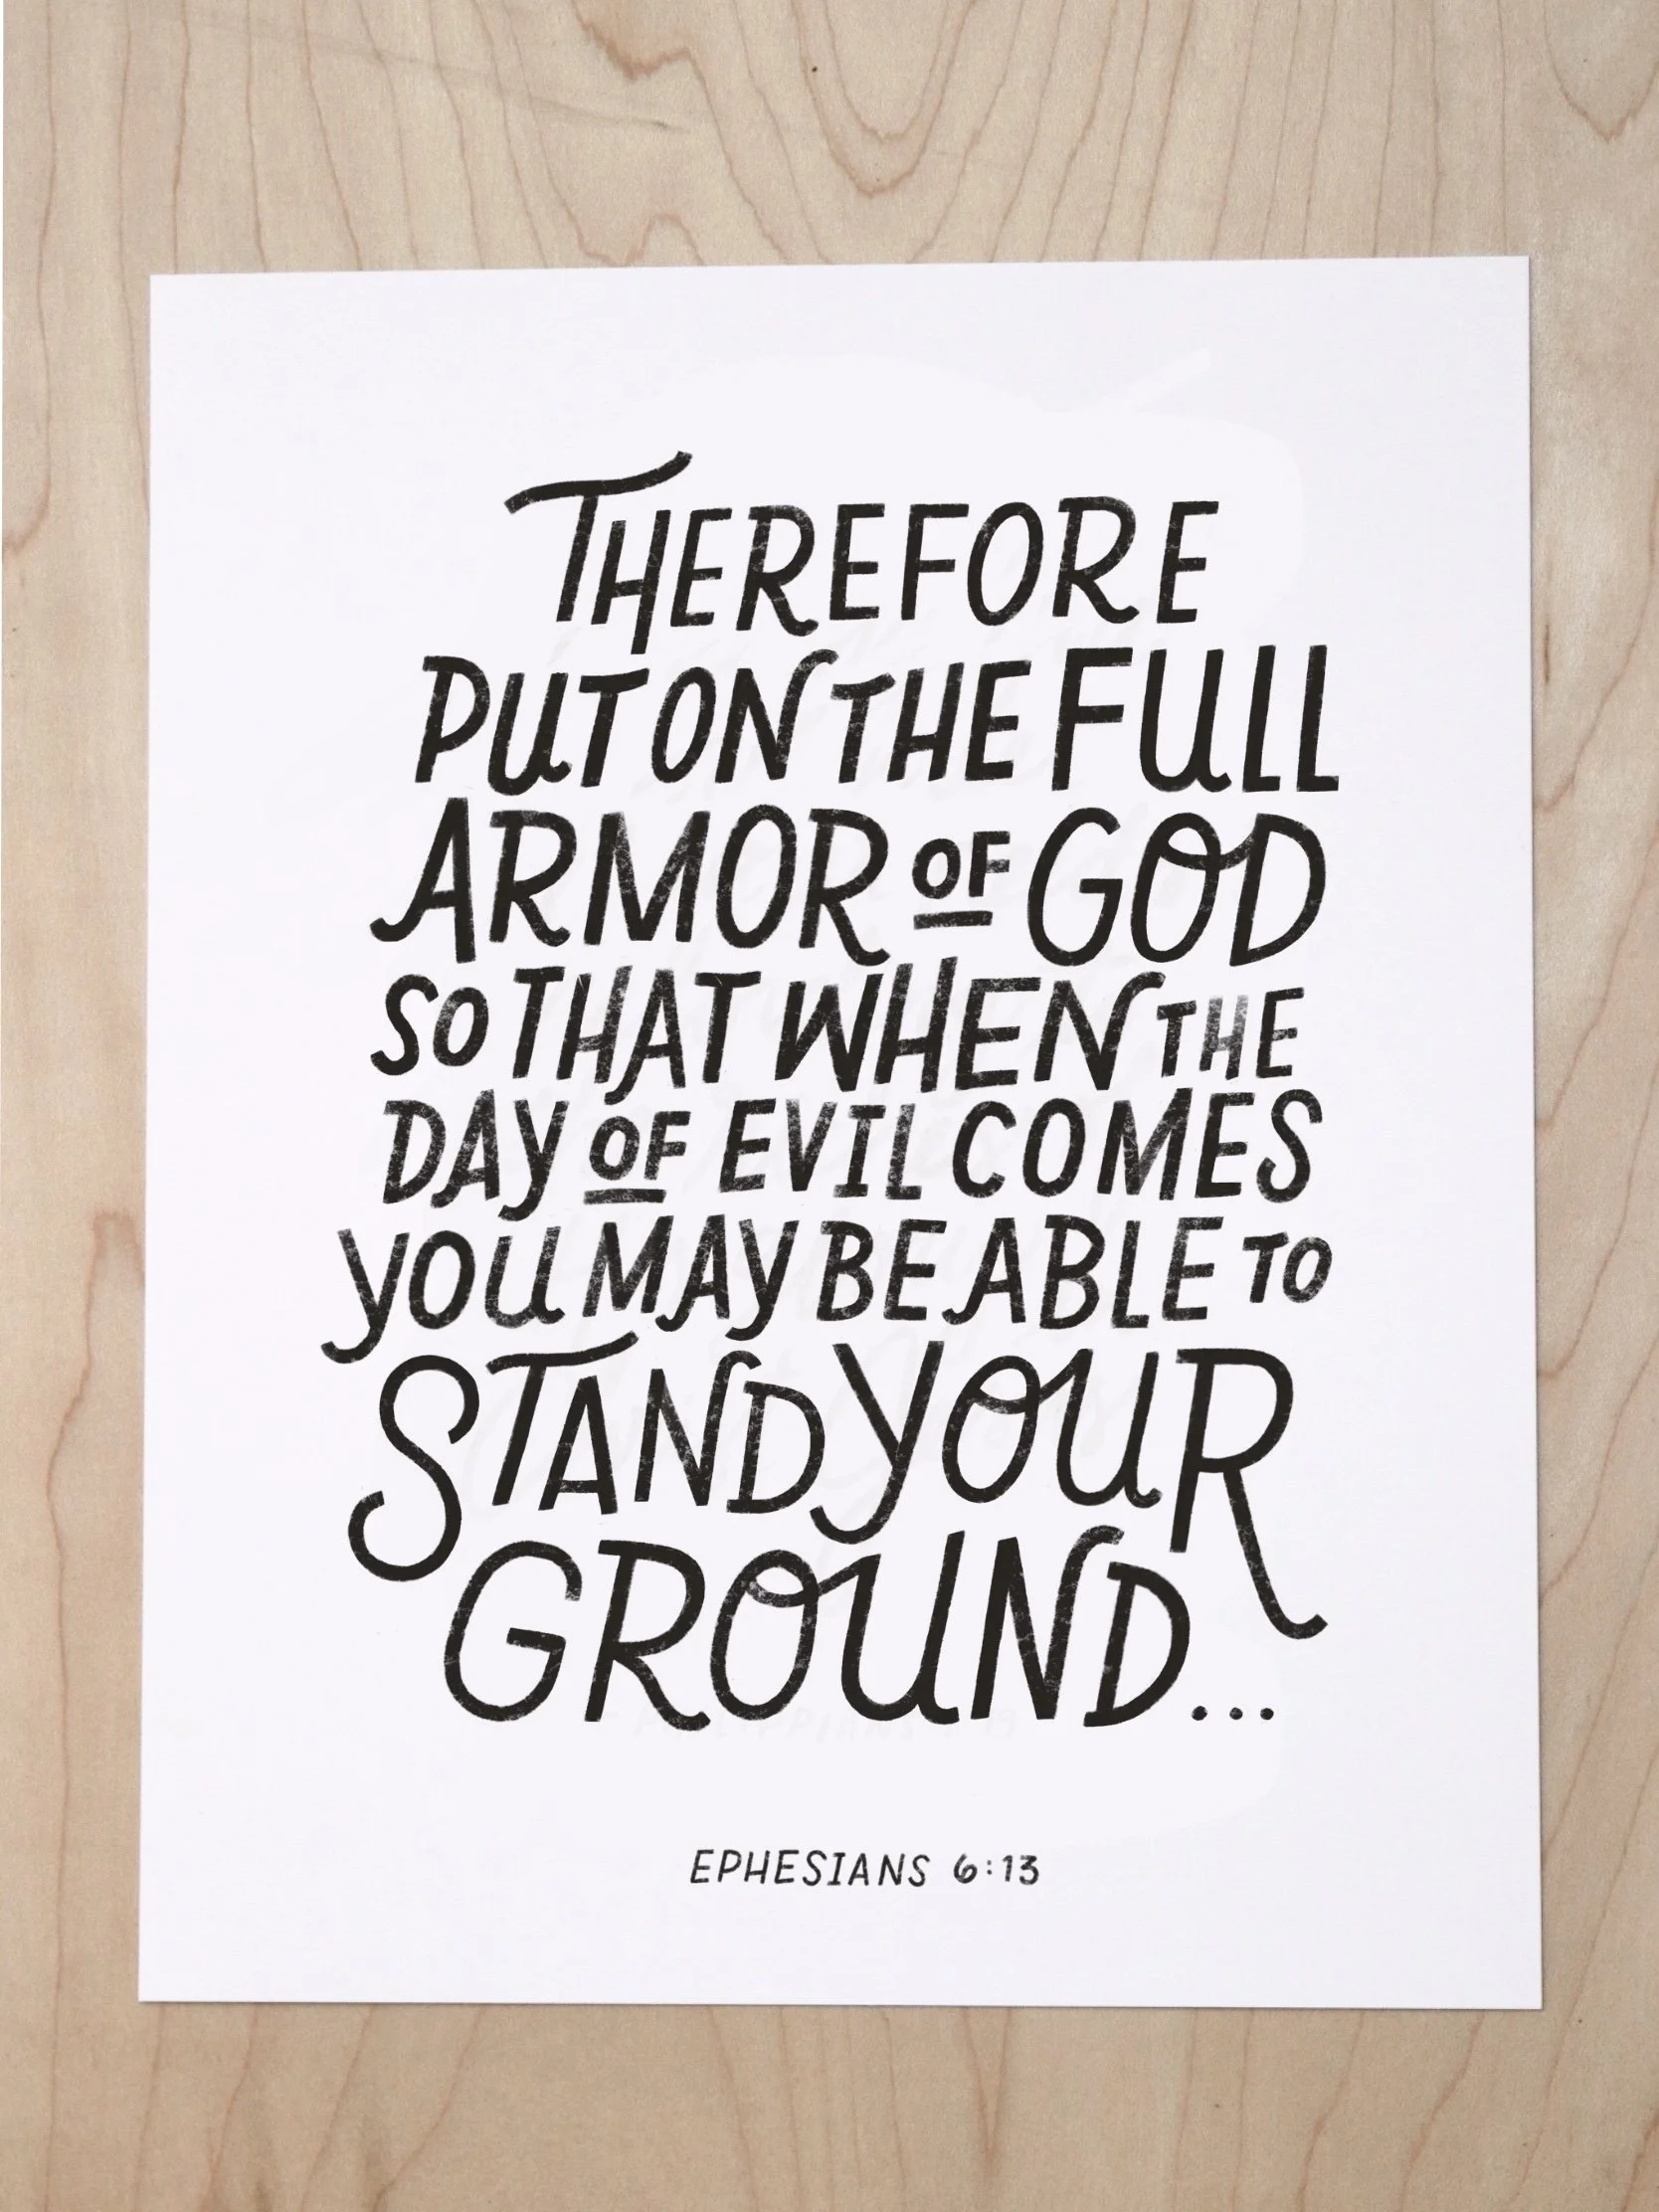 THEREFORE
PUT ON THE FULL
ARMOR OF GOD
SO THAT WHEN THE
DAY OF EVIL COMES
YOU MAY BE ABLE TO
STAND YOUR
GROUND...
EPHESIANS 6:13